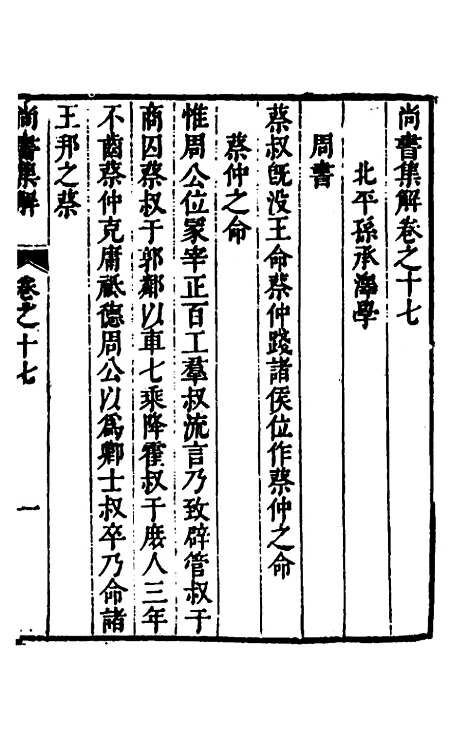 尚書集解卷之十七
北平孫承澤學
周書
蔡叔旣没王命蔡仲踐諸侯位作蔡仲之命
蔡仲之命
惟周公位冢宰正百工羣叔流言乃致辟管叔于
商囚蔡叔于郭鄰以車七乘降霍叔于庶人三年
不齒蔡仲克庸祗德周公以爲卿士叔卒乃命諸
王邦之蔡
尚書集解 卷之十七 一